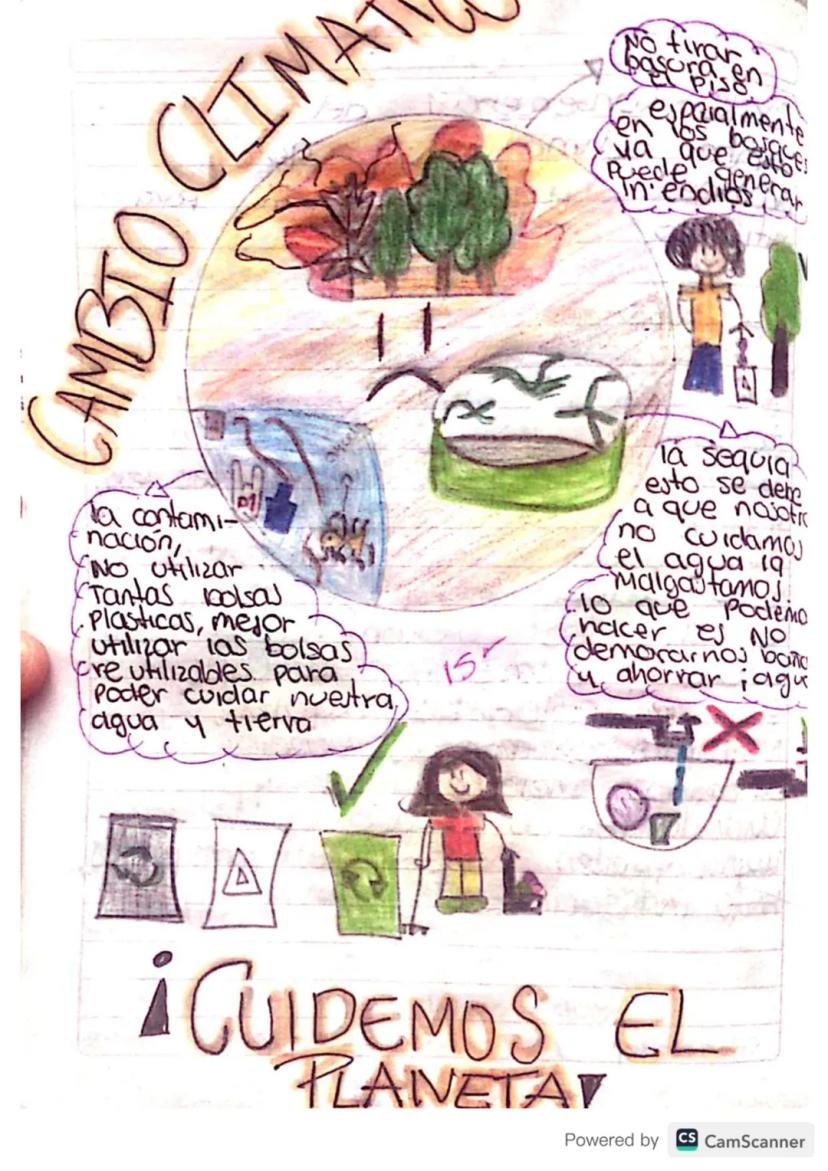 CAMBIO CLIMATIC
No tirar en
basura en
el piso.
espaialmente
en los bosques
ya que esto
puede generar
in endios
la sequia
esto se debe
a que nosotr
no cuidamos
el agua la
malgastamos.
lo que podemo
hacer es NO
demorarnos baña
y ahorrar ¡agu
la contami-
nación,
NO utilizar
Tantas bolsas
Plasticas, mejor
utilizar las bolsas
re utilizables para
poder cuidar nuestra
agua y tierra
15-
¡CUIDEMOS EL
PLANETA!
Powered by CS CamScanner